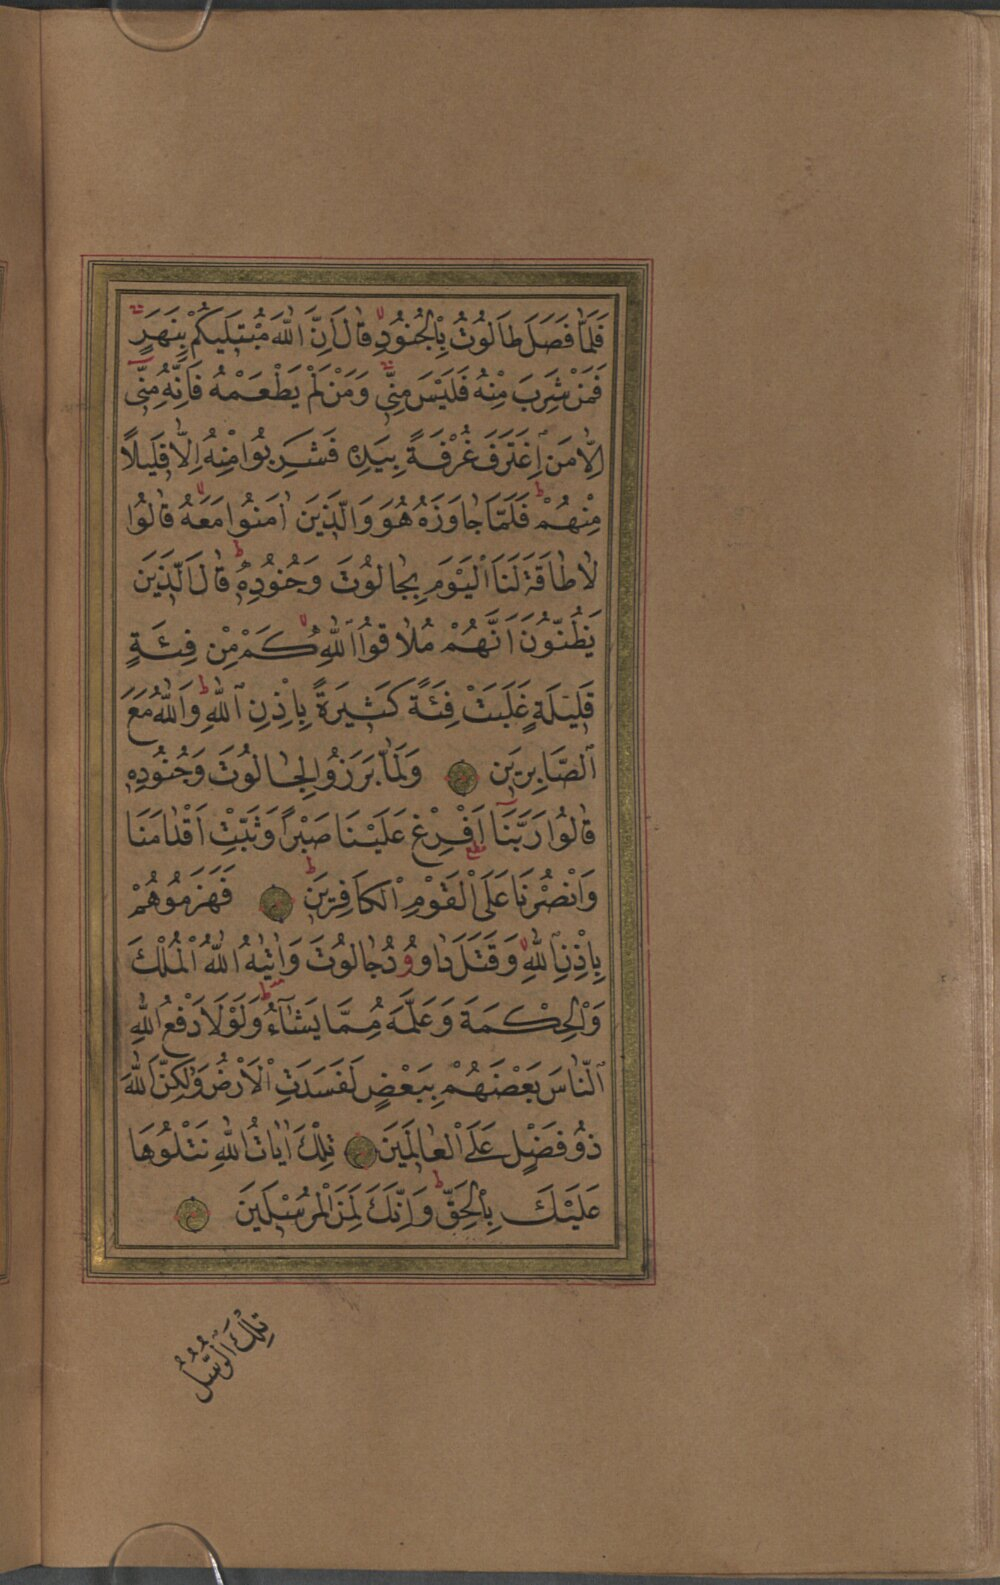 فَلَمَّا فَصَلَ طَالُوتُ بِالْجُنُودِ قَالَ اِنَّ اللّٰهَ مُبْتَلِيكُمْ بِنَهَرٍ
فَمَنْ شَرِبَ مِنْهُ فَلَيْسَ مِنّٖى وَمَنْ لَمْ يَطْعَمْهُ فَاِنَّهُ مِنّٖى
اِلَّا مَنِ اغْتَرَفَ غُرْفَةً بِيَدِهٖ فَشَرِبُوا مِنْهُ اِلَّا قَلٖيلًا
مِنْهُمْ فَلَمَّا جَاوَزَهُ هُوَ وَالَّذٖينَ اٰمَنُوا مَعَهُ قَالُوا
لَا طَاقَةَ لَنَا الْيَوْمَ بِجَالُوتَ وَجُنُودِهٖ قَالَ الَّذٖينَ
يَظُنُّونَ اَنَّهُمْ مُلَاقُوا اللّٰهِ كَمْ مِنْ فِئَةٍ
قَلٖيلَةٍ غَلَبَتْ فِئَةً كَثٖيرَةً بِاِذْنِ اللّٰهِ وَاللّٰهُ مَعَ
الصَّابِرٖينَ وَلَمَّا بَرَزُوا لِجَالُوتَ وَجُنُودِهٖ
قَالُوا رَبَّنَا اَفْرِغْ عَلَيْنَا صَبْرًا وَثَبِّتْ اَقْدَامَنَا
وَانْصُرْنَا عَلَى الْقَوْمِ الْكَافِرٖينَ فَهَزَمُوهُمْ
بِاِذْنِ اللّٰهِ وَقَتَلَ دَاوُودُ جَالُوتَ وَاٰتٰيهُ اللّٰهُ الْمُلْكَ
وَالْحِكْمَةَ وَعَلَّمَهُ مِمَّا يَشَاءُ وَلَوْلَا دَفْعُ اللّٰهِ
النَّاسَ بَعْضَهُمْ بِبَعْضٍ لَفَسَدَتِ الْاَرْضُ وَلٰكِنَّ اللّٰهَ
ذُو فَضْلٍ عَلَى الْعَالَمٖينَ تِلْكَ اٰيَاتُ اللّٰهِ نَتْلُوهَا
عَلَيْكَ بِالْحَقِّ وَاِنَّكَ لَمِنَ الْمُرْسَلٖينَ
تِلْكَ الرُّسُلُ